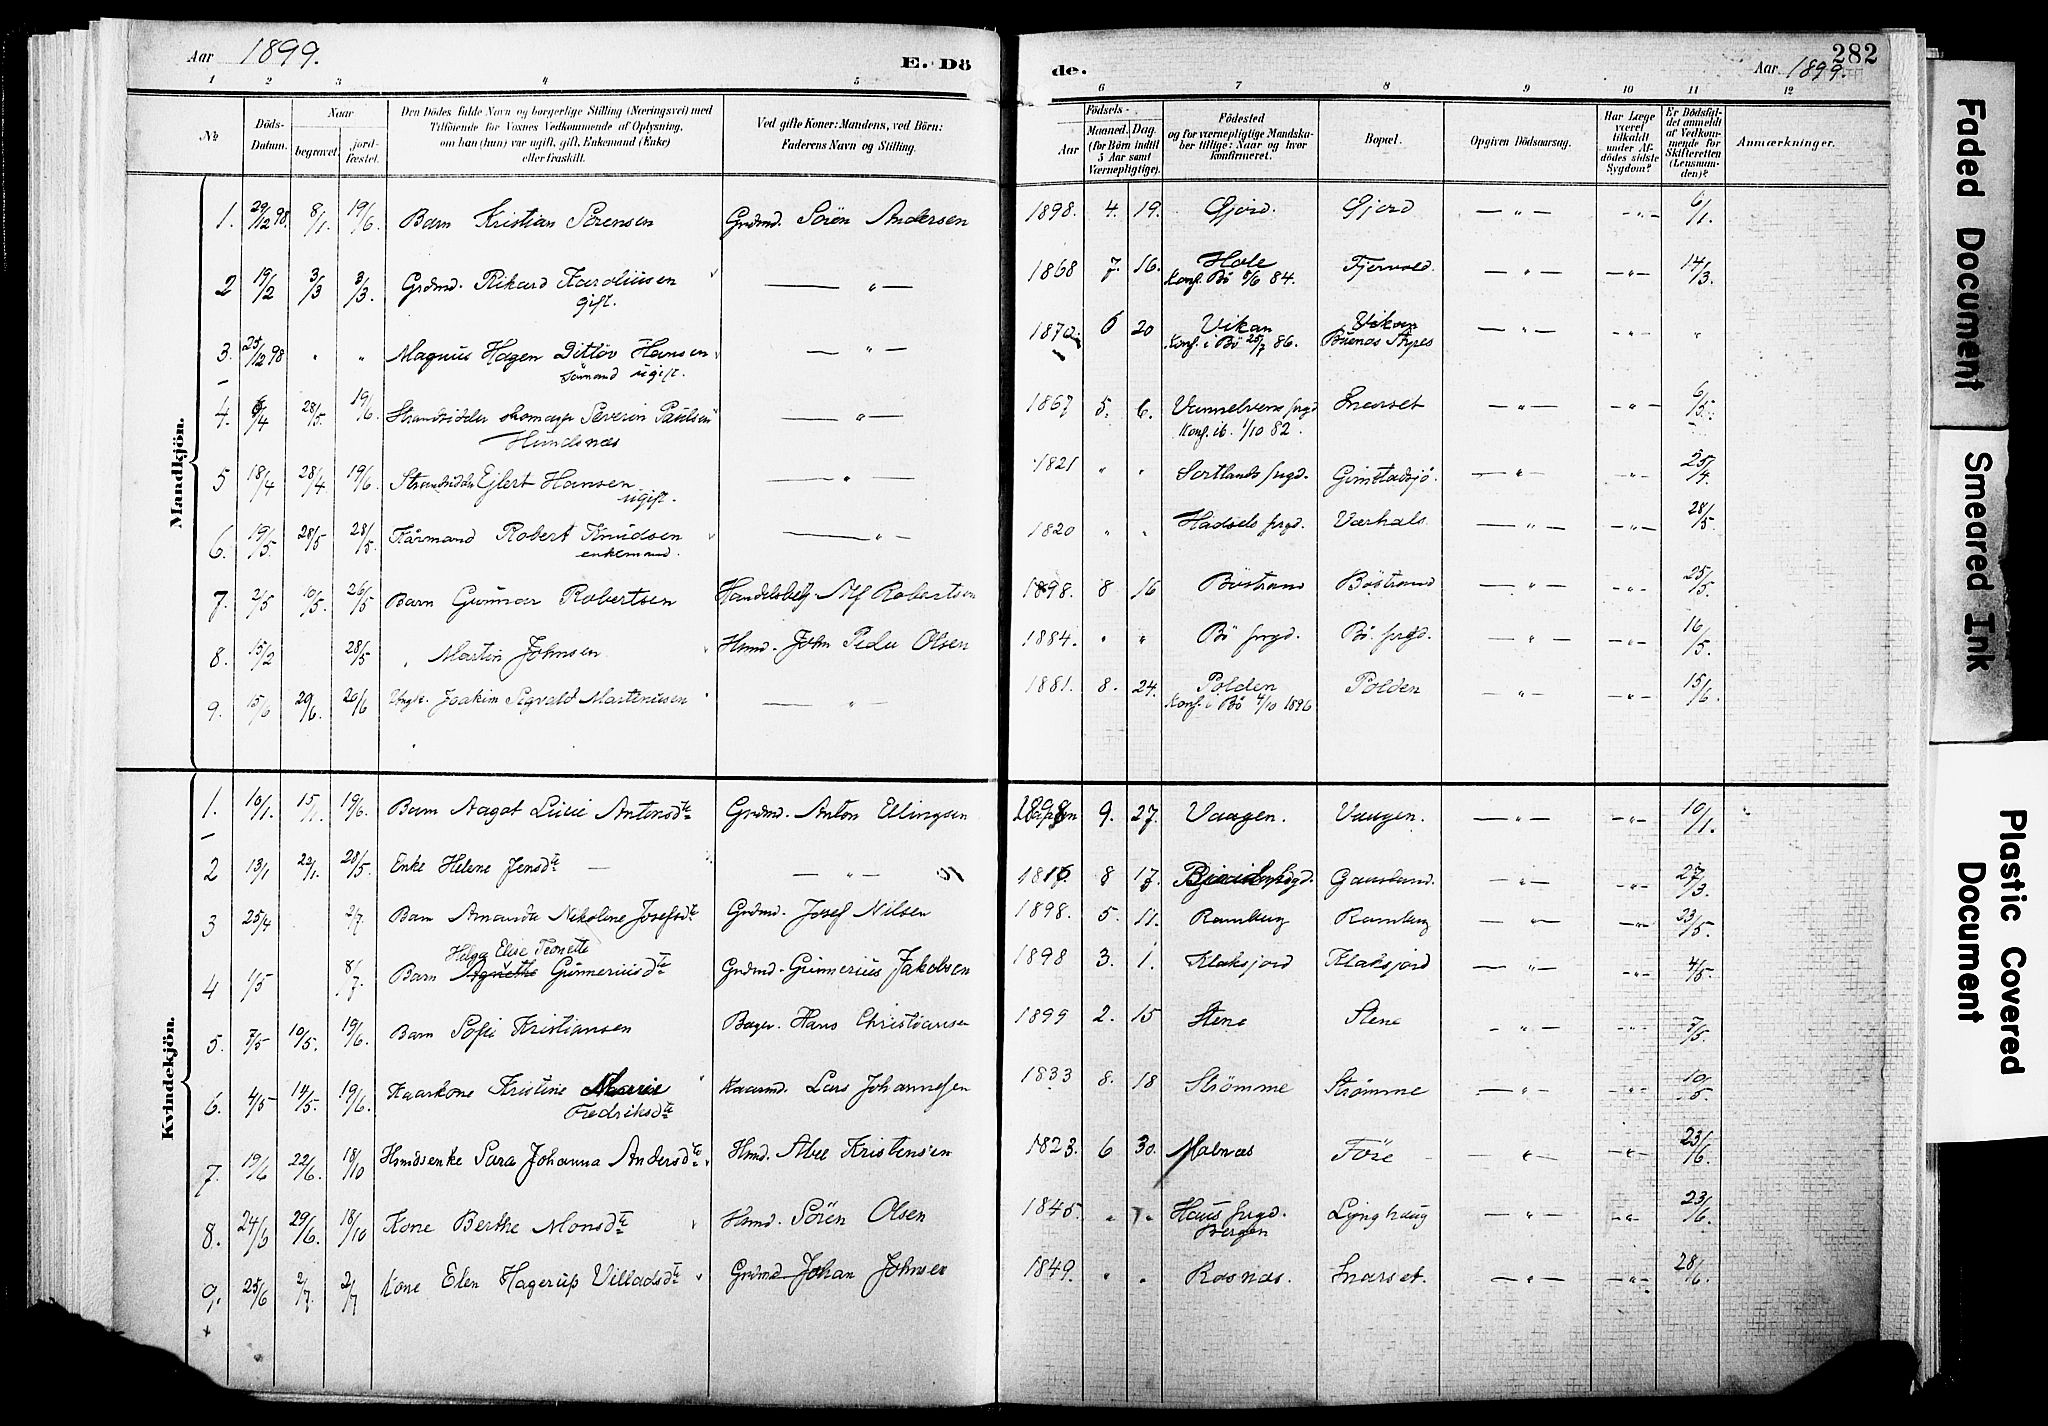 Aar 1899. E. Dö
de. Aar 1899. 282
1 2 3 4 5
6 7 8 9 10 11 12
No
Döds-Datum.
Naar
begravet.
jord-fæstet.
Den Dödes fulde Navn og borgerlige Stilling (Næringsvei) med
Tilföiende for Voxnes Vedkommende af Oplysning,
om han (hun) var ugift, gift, Enkemand (Enke)
eller fraskilt.
Ved gifte Koner: Mandens, ved Börn:
Faderens Navn og Stilling.
Födsels-
Aar
Maaned. Dag.
(for Börn indtil
5 Aar samt
Værnepligtige).
Födested
og for værnepligtige Mandska-
ber tillige: Naar og hvor
konfirmeret.
Bopæl.
Opgiven Dödsaarsag.
Har Læge
været
tilkaldt
under Af-
dödes sidste
Sygdom?
Er Dödsfal-
det anmeldt
af Vedkom-
mende for
Skifteretten
(Lensman-
den)?
Anmærkninger.
Mandkjön.
1. 29/12 98. 8/1 19/6 Barn Kristian Sörensen Grdmd. Sörèn Andersen 1898. 4. 19. Gjörd. Gjord — " — — " — 6/1.
2 19/2 3/3 3/3. Grdmd. Rikard Karoliusen — " — 1868 7. 16. Hole Fjervold. — " — — " — 14/3.
gift. Konf. Bö 8/6 84.
3. 25/12 98 " " Magnus Hagen Ditlöv Hansen — " — 1870 6 20 Vikan Vikan — " — — " — "
sömand ugift. Konf. i Bö 25/7 86. Buenos Ayres
4. 6/4 28/5. 19/6 Strandsidder skomager Severin Paulsen — " — 1867 5. 6. Vannelvens prgd Snarset — " — — " — 6/5.
Hundsnæs Konf. ib. 1/10 82.
5 18/4 28/4. 19/6. Strandsidder Ejlert Hansen — " — 1821 " " Sortlands prgd. Gimstadsjö. — " — — " — 25/4.
ugift.
6. 19/5 28/5 28/5. Kårmand Robert Knudsen — " — 1820 " " Hadsels prgd. Værhals — " — — " — 28/5.
enkemand.
7. 2/5 10/5. 26/5 Barn Gunnar Robertsen Handelsbetj. Alf Robertsen 1898. 8 16 Böstrand Böstrand — " — — " — 25/5.
8. 15/2 28/5 " Martin Johnsen Hmd. John Peder Olsen 1884. " " Bö prgd. Bö prgd. — " — — " — 16/5.
9. 15/6 20/6. 20/6 Ungk. Joakim Sigvald Martinusen — " — 1881. 8. 24. Polden Polden — " — — " — 15/6.
Konf. i Bö 4/10 1896
Kvindekjön.
1. 10/1. 15/1. 19/6. Barn Aagot Lucie Antonsdtr Grdmd. Anton Ellingsen 1898 9. 27. Vaagen. Vaagen. — " — — " — 10/1.
2 13/1 22/1. 28/5. Enke Helene Jensdtr — — " — 1816 8 17 Gaasland. — " — — " — 27/3.
3 25/4 2/7 Barn Amanda Nikoline Josefsdtr Grdmd. Josef Nilsen 1898. 5. 11. Ramberg Ramberg — " — — " — 23/5.
Helga Elise Teonette
4 1/5 8/7. Barn Agnethe Gunneriusdtr Grdmd. Gunnerius Jakobsen 1898 3. 1. Klaksjord Klaksjord — " — — " — 4/5.
5. 7/5 10/5. 19/6. Barn Sofie Kristiansen Bager. Hans Christiansen 1899 2. 15 Stene Stene — " — — " — 7/5.
6. 4/5 14/5. 19/6. Kaarkone Kristine Marie Kaarmd. Lars Johannesen 1833 8. 18 Strömme Strömme — " — — " — 10/5
Fredriksdtr
7. 19/6 22/6. 18/10 Hmdsenke Sara Johanna Andersdtr Hmd. Abel Kristensen 1823. 6 30. Malnæs Före — " — — " — 23/6.
8. 24/6 29/6. 18/10 Kone Berthe Monsdtr Hmd. Sörèn Olsen 1845. " " Haus prgd. Lynghaug — " — — " — 23/6.
Bergen
9. 25/6 2/7. 2/7 Kone Elen Hagerup Villadsdtr Grdmd Johan Johnsen 1849. " " Rosnæs. Snarset. — " — — " — 28/6.
+
Faded Document
Smeared Ink
Plastic Covered
Document